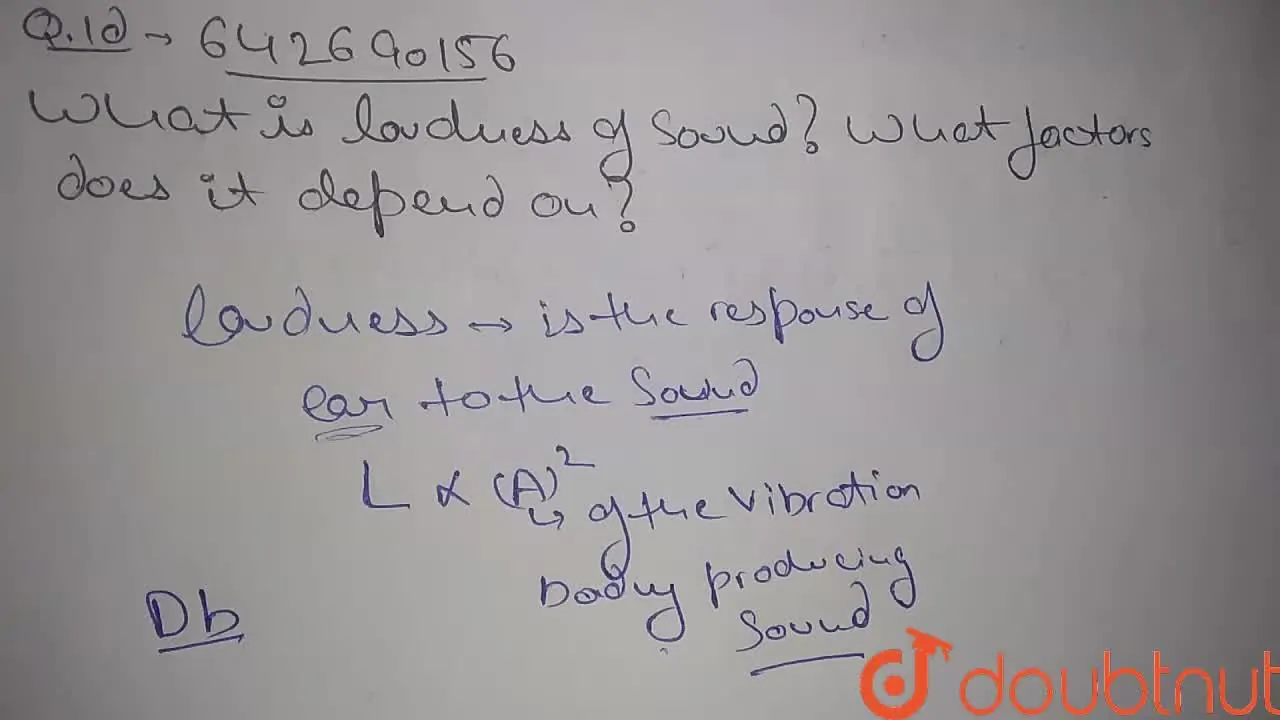 Q.Id → 642690156
What is loudness of Sound? What factors
does it depend on?
loudness → is the response of
ear to the Sound
L ∝ (A)²
↳ of the vibration
Body producing
Sound
Db
doubtnut